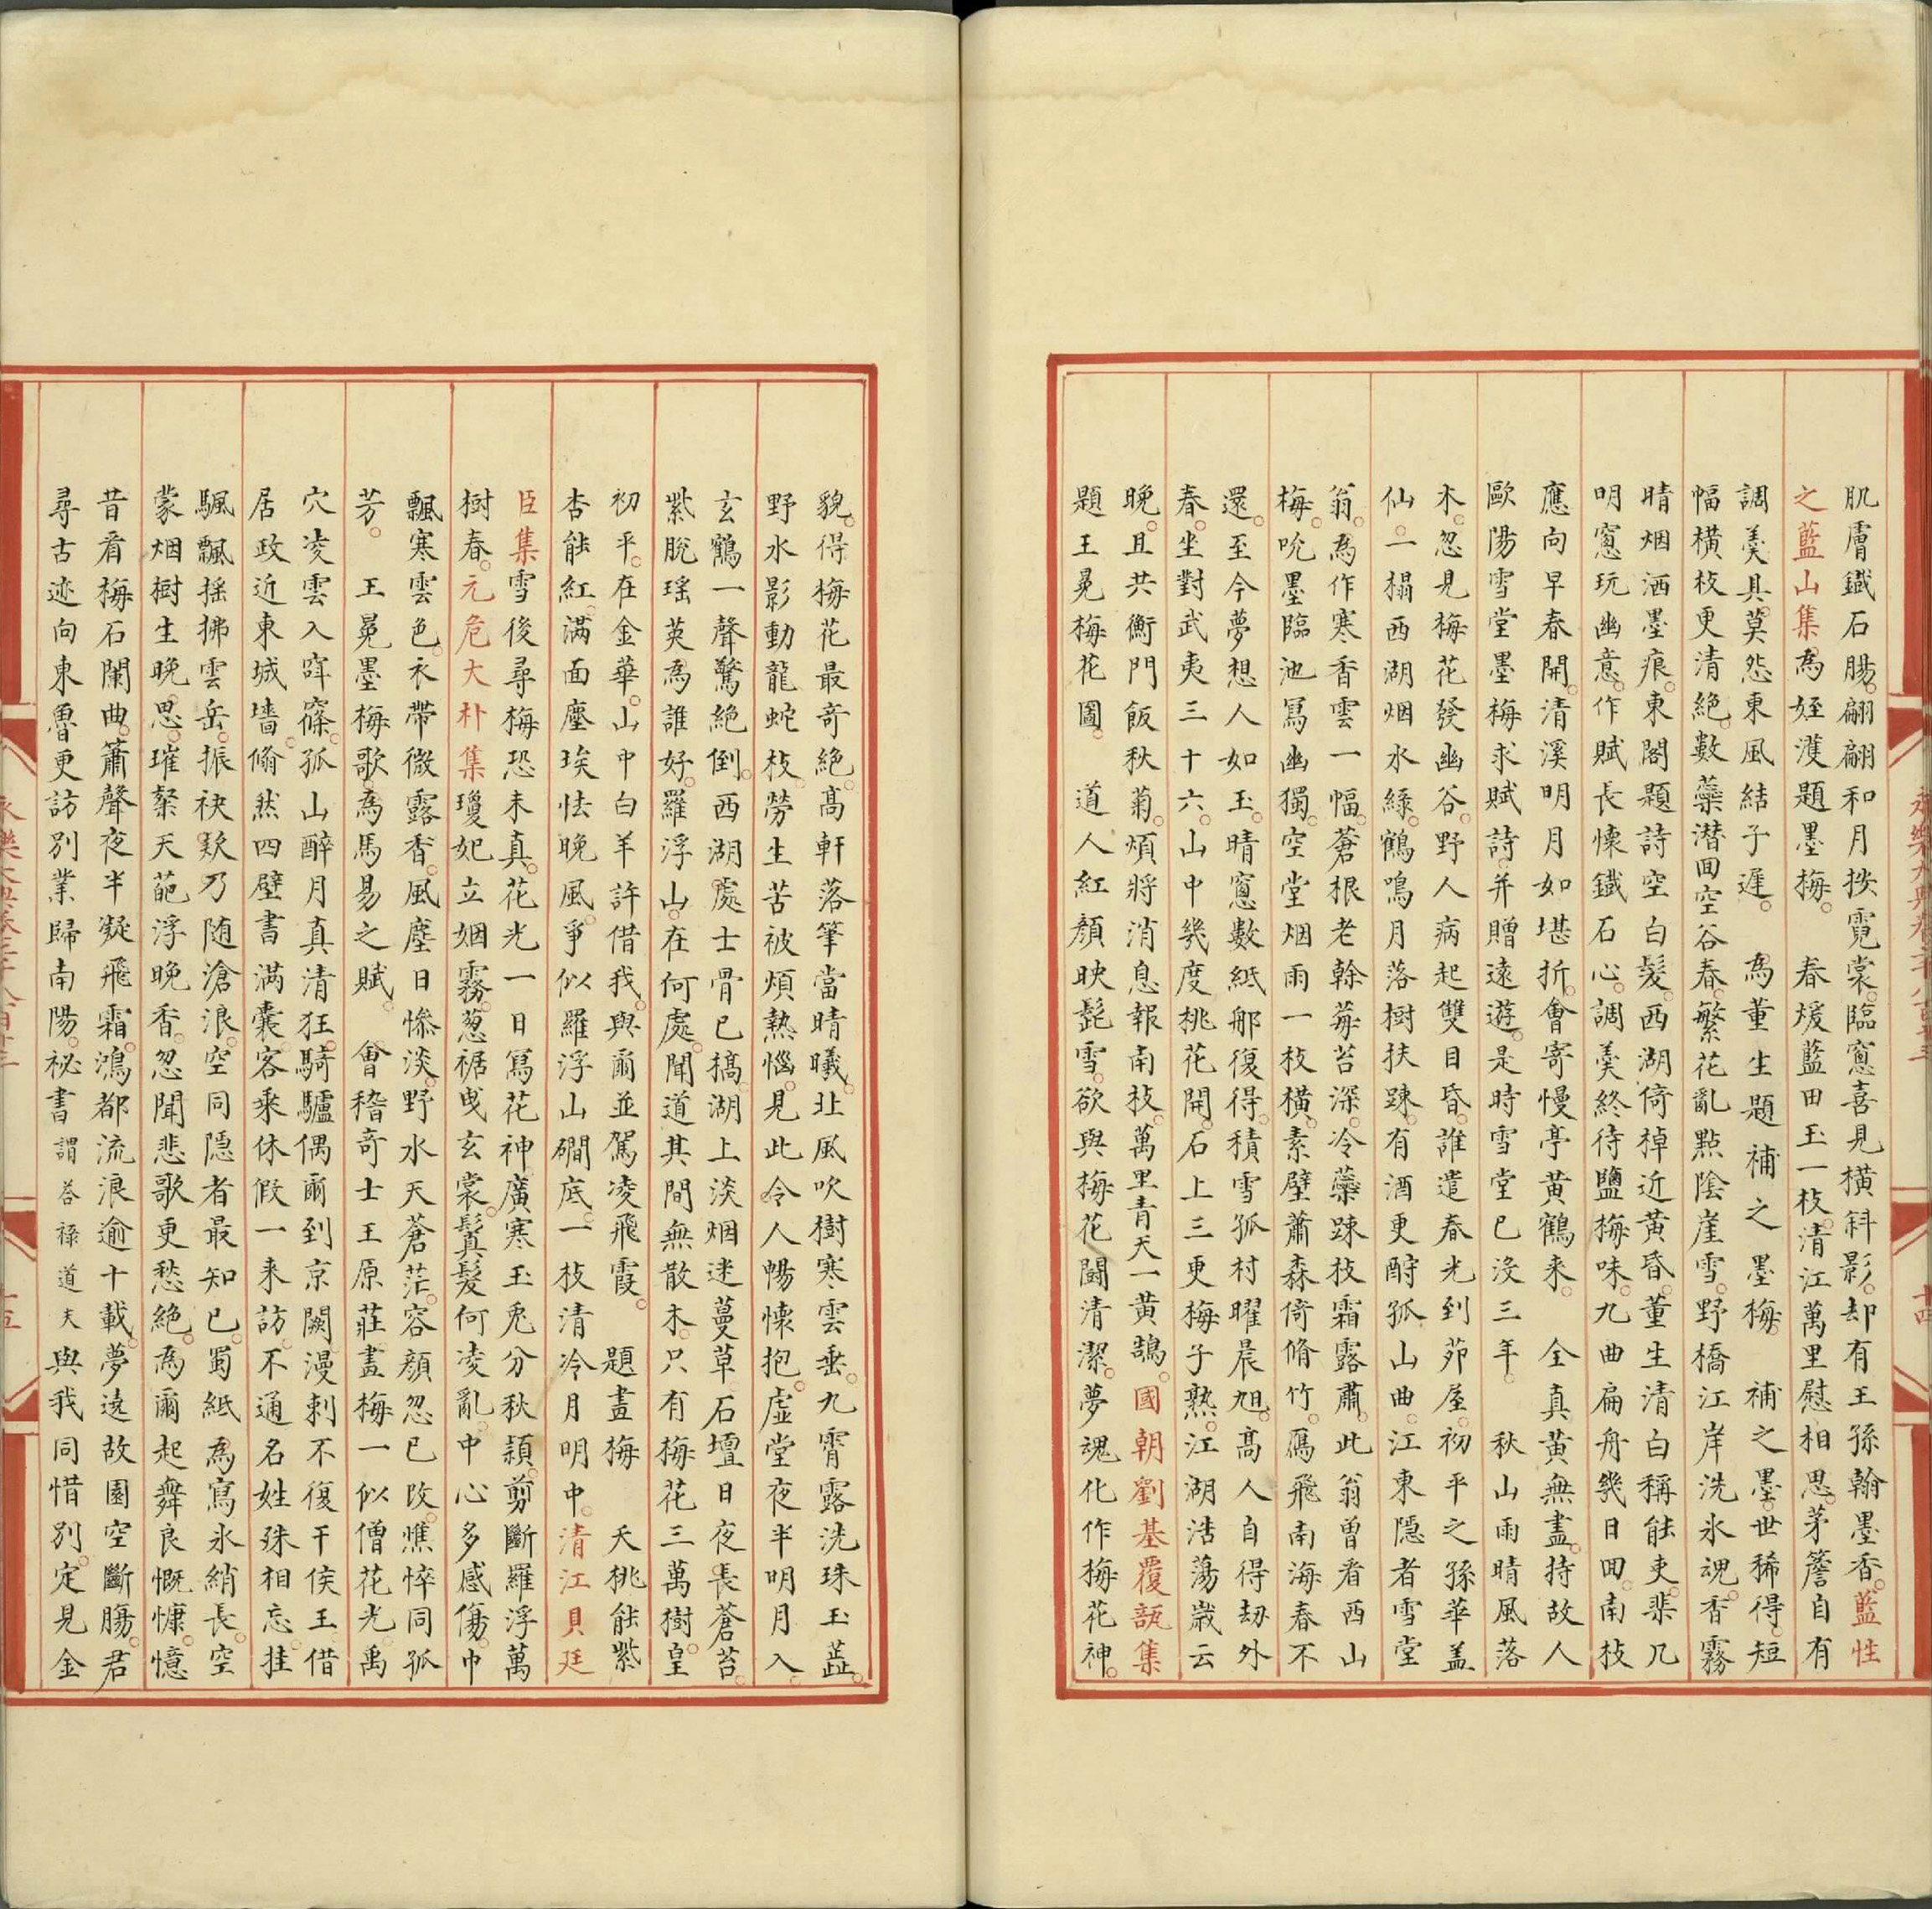 肌膚鐵石腸翩翩和月按霓裳臨窻喜見橫斜影却有王孫翰墨香藍性
之藍山集為姪濩題墨梅　春煖藍田玉一枝清江萬里慰相思茅簷自有
調羹具莫怨東風結子遲　為董生題補之墨梅　補之墨世稀得短
幅橫枝更清絶數蘂潜回空谷春繁花亂點陰崖雪野橋江岸洗氷魂香霧
晴烟洒墨痕東閣題詩空白髮西湖倚棹近黃昏董生清白稱能吏棐几
明窻玩幽意作賦長懷鐵石心調羹終待鹽梅味九曲扁舟幾日回南枝
應向早春開清溪明月如堪折會寄慢亭黃鶴来　全真黃無盡持故人
歐陽雪堂墨梅求賦詩并贈遠遊是時雪堂已沒三年　秋山雨晴風落
木忽見梅花發幽谷野人病起雙目昏誰遣春光到茆屋初平之孫華盖
仙一榻西湖烟水緑鶴鳴月落樹扶踈有酒更酹孤山曲江東隱者雪堂
翁為作寒香雲一幅蒼根老榦莓苔深冷蘂踈枝霜露肅此翁曽看西山
梅吮墨臨池冩幽獨空堂烟雨一枝橫素壁蕭森倚脩竹鴈飛南海春不
還至今夢想人如玉晴窻數紙郍復得積雪孤村曜晨旭髙人自得刼外
春坐對武夷三十六山中幾度桃花開石上三更梅子熟江湖浩蕩歲云
晚且共衡門飯秋菊煩將消息報南枝萬里青天一黃鵠國朝劉基覆瓿集
題王冕梅花圖　道人紅顏映髭雪欲與梅花鬭清潔夢魂化作梅花神
貌得梅花最竒絶髙軒落筆當晴曦北風吹樹寒雲垂九霄露洗珠玉蕋
野水影動龍蛇枝勞生苦被煩熱惱見此令人暢懷抱虛堂夜半明月入
玄鶴一聲驚絶倒西湖處士骨已槁湖上淡烟迷蔓草石壇日夜長蒼苔
紫脫瑶英為誰好羅浮山在何處聞道其間無散木只有梅花三萬樹皇
初平在金華山中白羊許借我與爾並駕凌飛霞　題畫梅　夭桃能紫
杏能紅滿面塵埃怯晚風爭似羅浮山磵底一枝清冷月明中清江貝廷
臣集雪後尋梅恐未真花光一日冩花神廣寒玉兎分秋頴剪斷羅浮萬
樹春元危大朴集瓊妃立姻霧葱裾曵玄裳鬒髮何凌亂中心多感傷巾
飄寒雲色衣帶微露香風塵日慘淡野水天蒼茫容顏忽已改憔悴同孤
芳　王冕墨梅歌為馬易之賦　會稽竒士王原莊畫梅一似僧花光禹
穴凌雲入窅窱孤山醉月真清狂騎驢偶爾到京闕漫刺不復干侯王借
居政近東城墻翛然四壁書滿囊客乘休假一来訪不通名姓殊相忘挂
颿飄揺拂雲岳振袂欵乃随滄浪空同隱者最知已蜀紙為寫氷綃長空
蒙烟樹生晚思璀粲天葩浮晚香忽聞悲歌更愁絶為爾起舞良慨慷憶
昔看梅石闌曲簫聲夜半凝飛霜鴻都流浪逾十載夢遠故園空斷膓君
尋古迹向東魯更訪别業歸南陽祕書謂荅禄道夫與我同惜别定見金